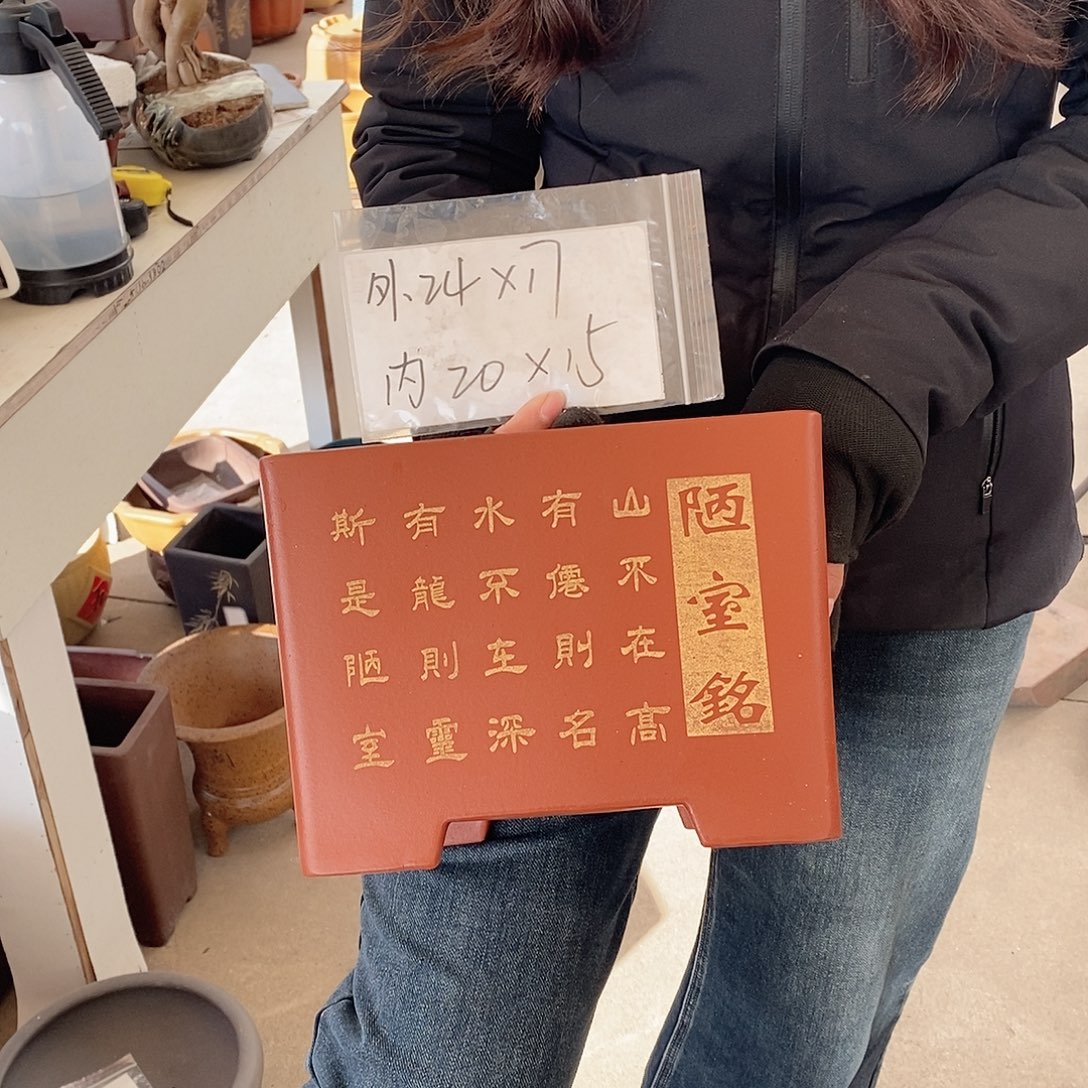 外.24×17
内20×15
陋室銘
山不在高
有僊則名
水不在深
有龍則靈
斯是陋室